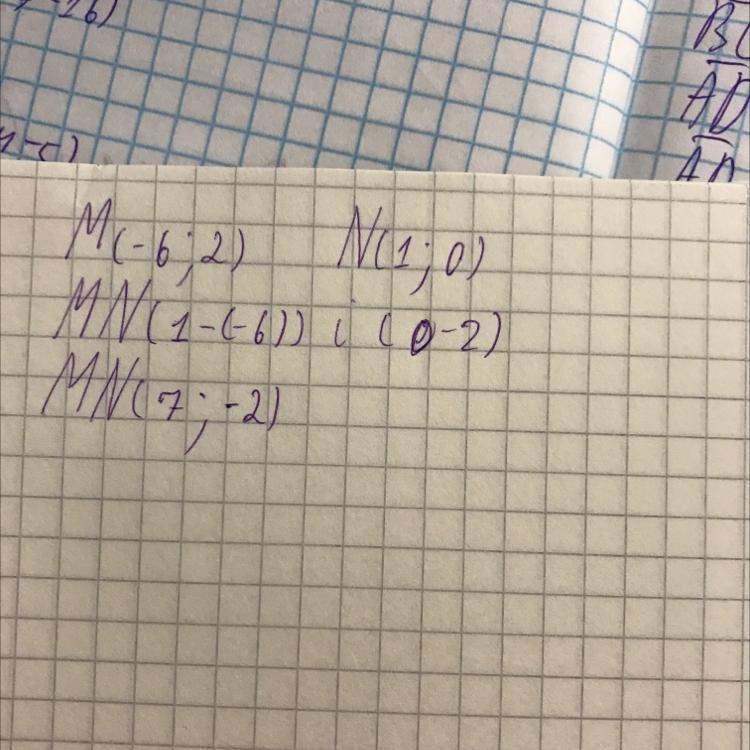 -16)
BC
AD
M(-6;2) N(1;0)
MN(1-(-6)) ; (0-2)
MN(7;-2)